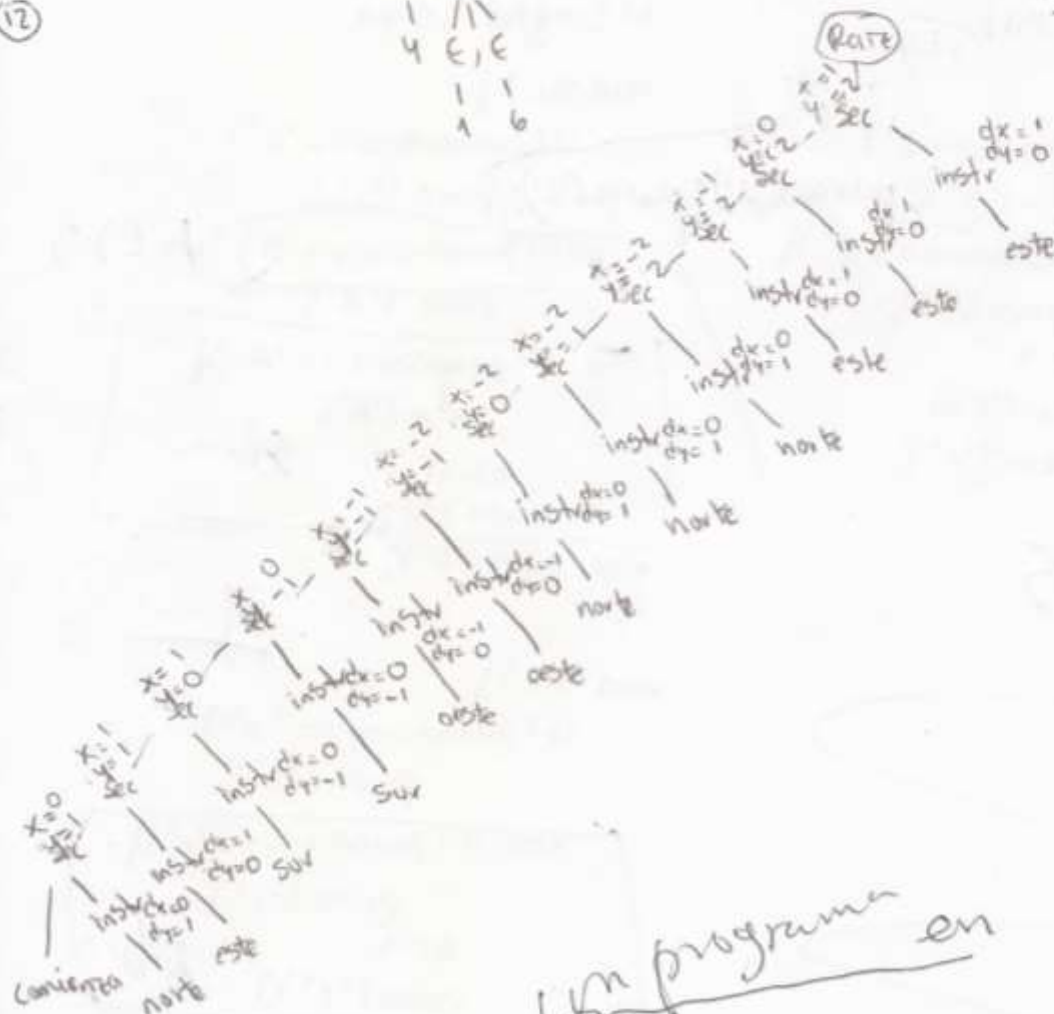 12
4 E, E
1 6
Raiz
x=1
y=2
sec
instr dx=1
dy=0
este
x=0
y=2
sec
instr dx=1
dy=0
este
x=-1
y=2
sec
instr dx=1
dy=0
este
x=-2
y=2
sec
instr dx=0
dy=1
norte
x=-2
y=1
sec
instr dx=0
dy=1
norte
x=-2
y=0
sec
instr dx=0
dy=1
norte
x=-2
y=-1
sec
instr dx=-1
dy=0
oeste
x=-1
y=-1
sec
instr
dx=-1
dy=0
oeste
x=0
y=-1
sec
instr dx=0
dy=-1
sur
x=1
y=0
sec
instr dx=0
dy=-1
sur
x=1
y=1
sec
instr dx=1
dy=0
este
x=0
y=1
sec
instr dx=0
dy=1
comienza
norte
un programa
en